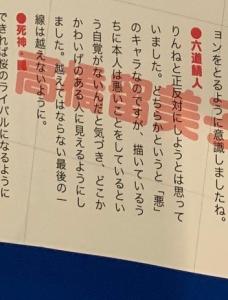 ョンをとるように意識しましたね。
●六道鯖人
りんねと正反対にしようとは思って
いました。どちらかというと「悪」
のキャラなのですが、描いているう
ちに本人は悪いことをしているとい
う自覚がないんだと気づき、どこか
かわいげのある人に見えるようにし
ました。越えてはならない最後の一
線は越えないように。
●死神・鳳
できれば桜のライバルになるように